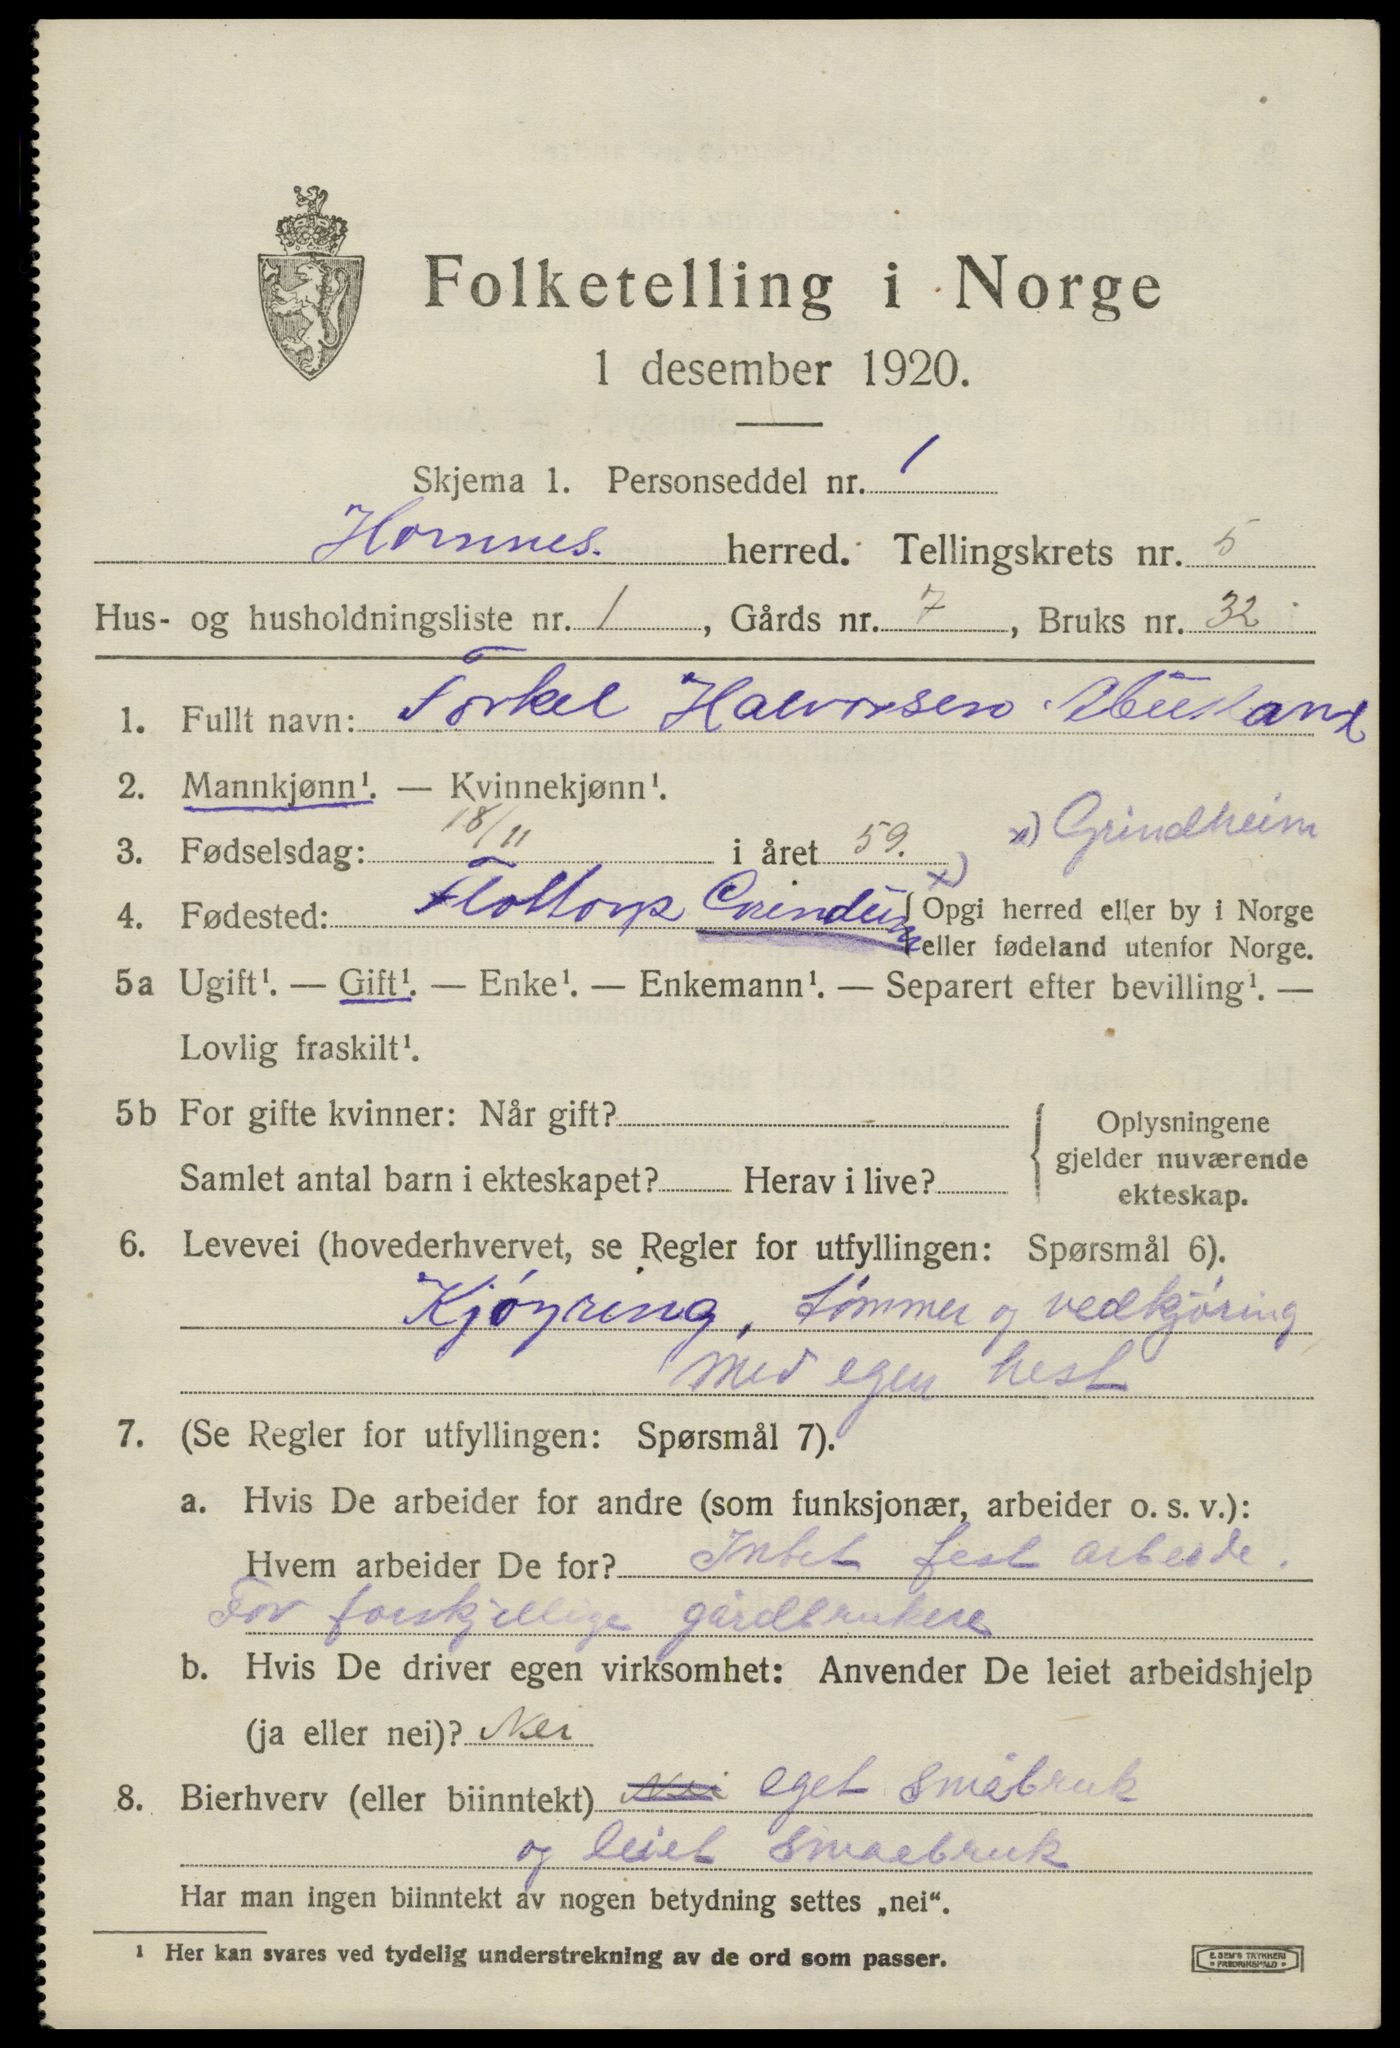 Folketelling i Norge
1 desember 1920.
Skjema 1. Personseddel nr. 1
Hornnes. herred. Tellingskrets nr. 5
Hus- og husholdningsliste nr. 1, Gårds nr. 7, Bruks nr. 32
1. Fullt navn: Torkel Halvorsen Abusland
2. Mannkjønn¹. — Kvinnekjønn¹.
3. Fødselsdag: 18/11 i året 59. x) x) Grindheim
4. Fødested: Flottorp Grindeim { Opgi herred eller by i Norge
eller fødeland utenfor Norge.
5a Ugift¹. — Gift¹. — Enke¹. — Enkemann¹. — Separert efter bevilling¹. —
Lovlig fraskilt¹.
5b For gifte kvinner: Når gift?
Samlet antal barn i ekteskapet? Herav i live?
{ Oplysningene
gjelder nuværende
ekteskap.
6. Levevei (hovederhvervet, se Regler for utfyllingen: Spørsmål 6).
Kjöyring, tømmer og vedkjøring
med egen hest
7. (Se Regler for utfyllingen: Spørsmål 7).
a. Hvis De arbeider for andre (som funksjonær, arbeider o. s. v.):
Hvem arbeider De for? Intet fest arbeide.
For forskjellige gårdbrukere
b. Hvis De driver egen virksomhet: Anvender De leiet arbeidshjelp
(ja eller nei)? Nei
8. Bierhverv (eller biinntekt) Nei eget småbruk
og leiet smaabruk
Har man ingen biinntekt av nogen betydning settes „nei“.
¹ Her kan svares ved tydelig understrekning av de ord som passer.
E. SEM'S TRYKKERI
FREDRIKSHALD